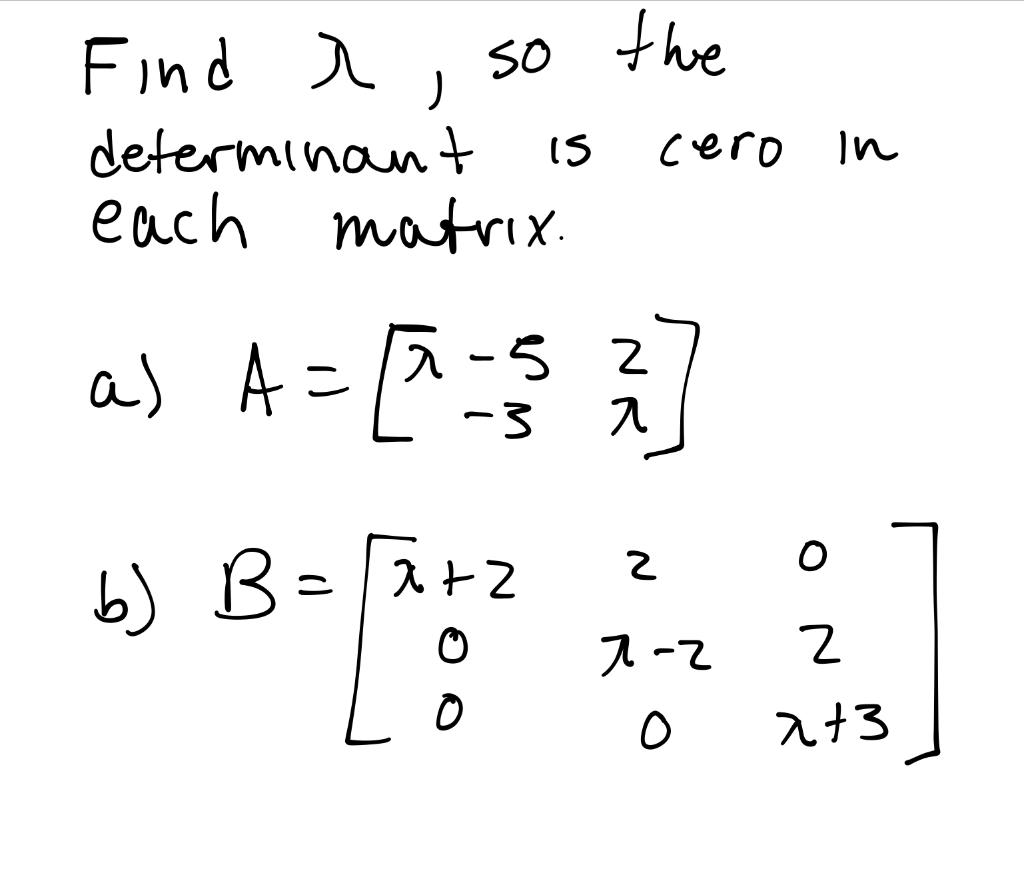 Find λ, so the
determinant is cero in
each matrix.
a) A = [λ - 5 2
-3 λ]
b) B = [λ + 2 2 0
0 λ - 2 2
0 0 λ + 3]